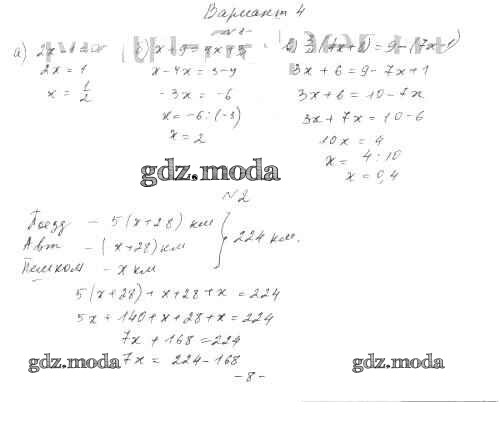 Вариант 4
№1
а) 2x - 1 = 0
2x = 1
x = 1/2
б) x + 9 = 4x + 3
x - 4x = 3 - 9
-3x = -6
x = -6 : (-3)
x = 2
в) (4x + 8) = 9 - (7x - 1)
3x + 6 = 9 - 7x + 1
3x + 6 = 10 - 7x
3x + 7x = 10 - 6
10x = 4
x = 4 : 10
x = 0,4
gdz.moda
№2
Поезд – 5(x+28) км
Авт – (x+28) км
Пешком – x км
224 км.
5(x+28) + x + 28 + x = 224
5x + 140 + x + 28 + x = 224
7x + 168 = 224
7x = 224 - 168
gdz.moda
gdz.moda
- 8 -